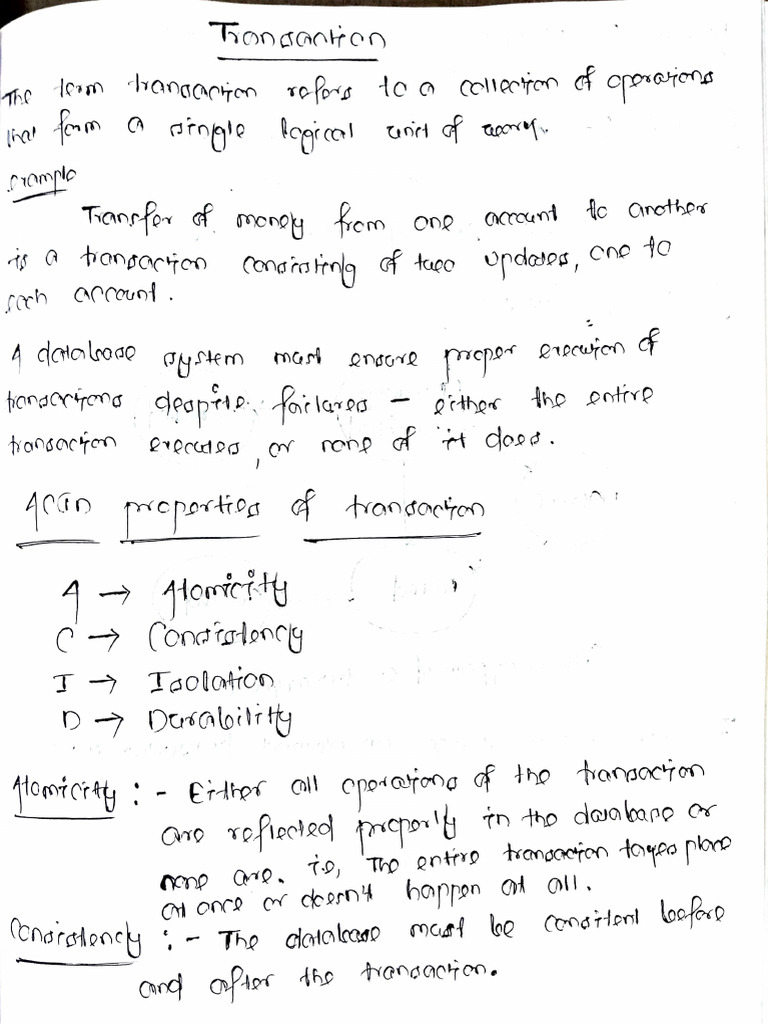 Transaction
The term transaction refers to a collection of operations
that form a single logical unit of work.
Example
Transfer of money from one account to another
is a transaction consisting of two updates, one to
each account.
A database system must ensure proper execution of
transactions despite failures - either the entire
transaction executes, or none of it does.
ACID properties of transaction
A → Atomicity
C → Consistency
I → Isolation
D → Durability
Atomicity : - Either all operations of the transaction
are reflected properly in the database or
none are. i.e, The entire transaction takes place
at once or doesn't happen at all.
Consistency : - The database must be consitent before
and after the transaction.